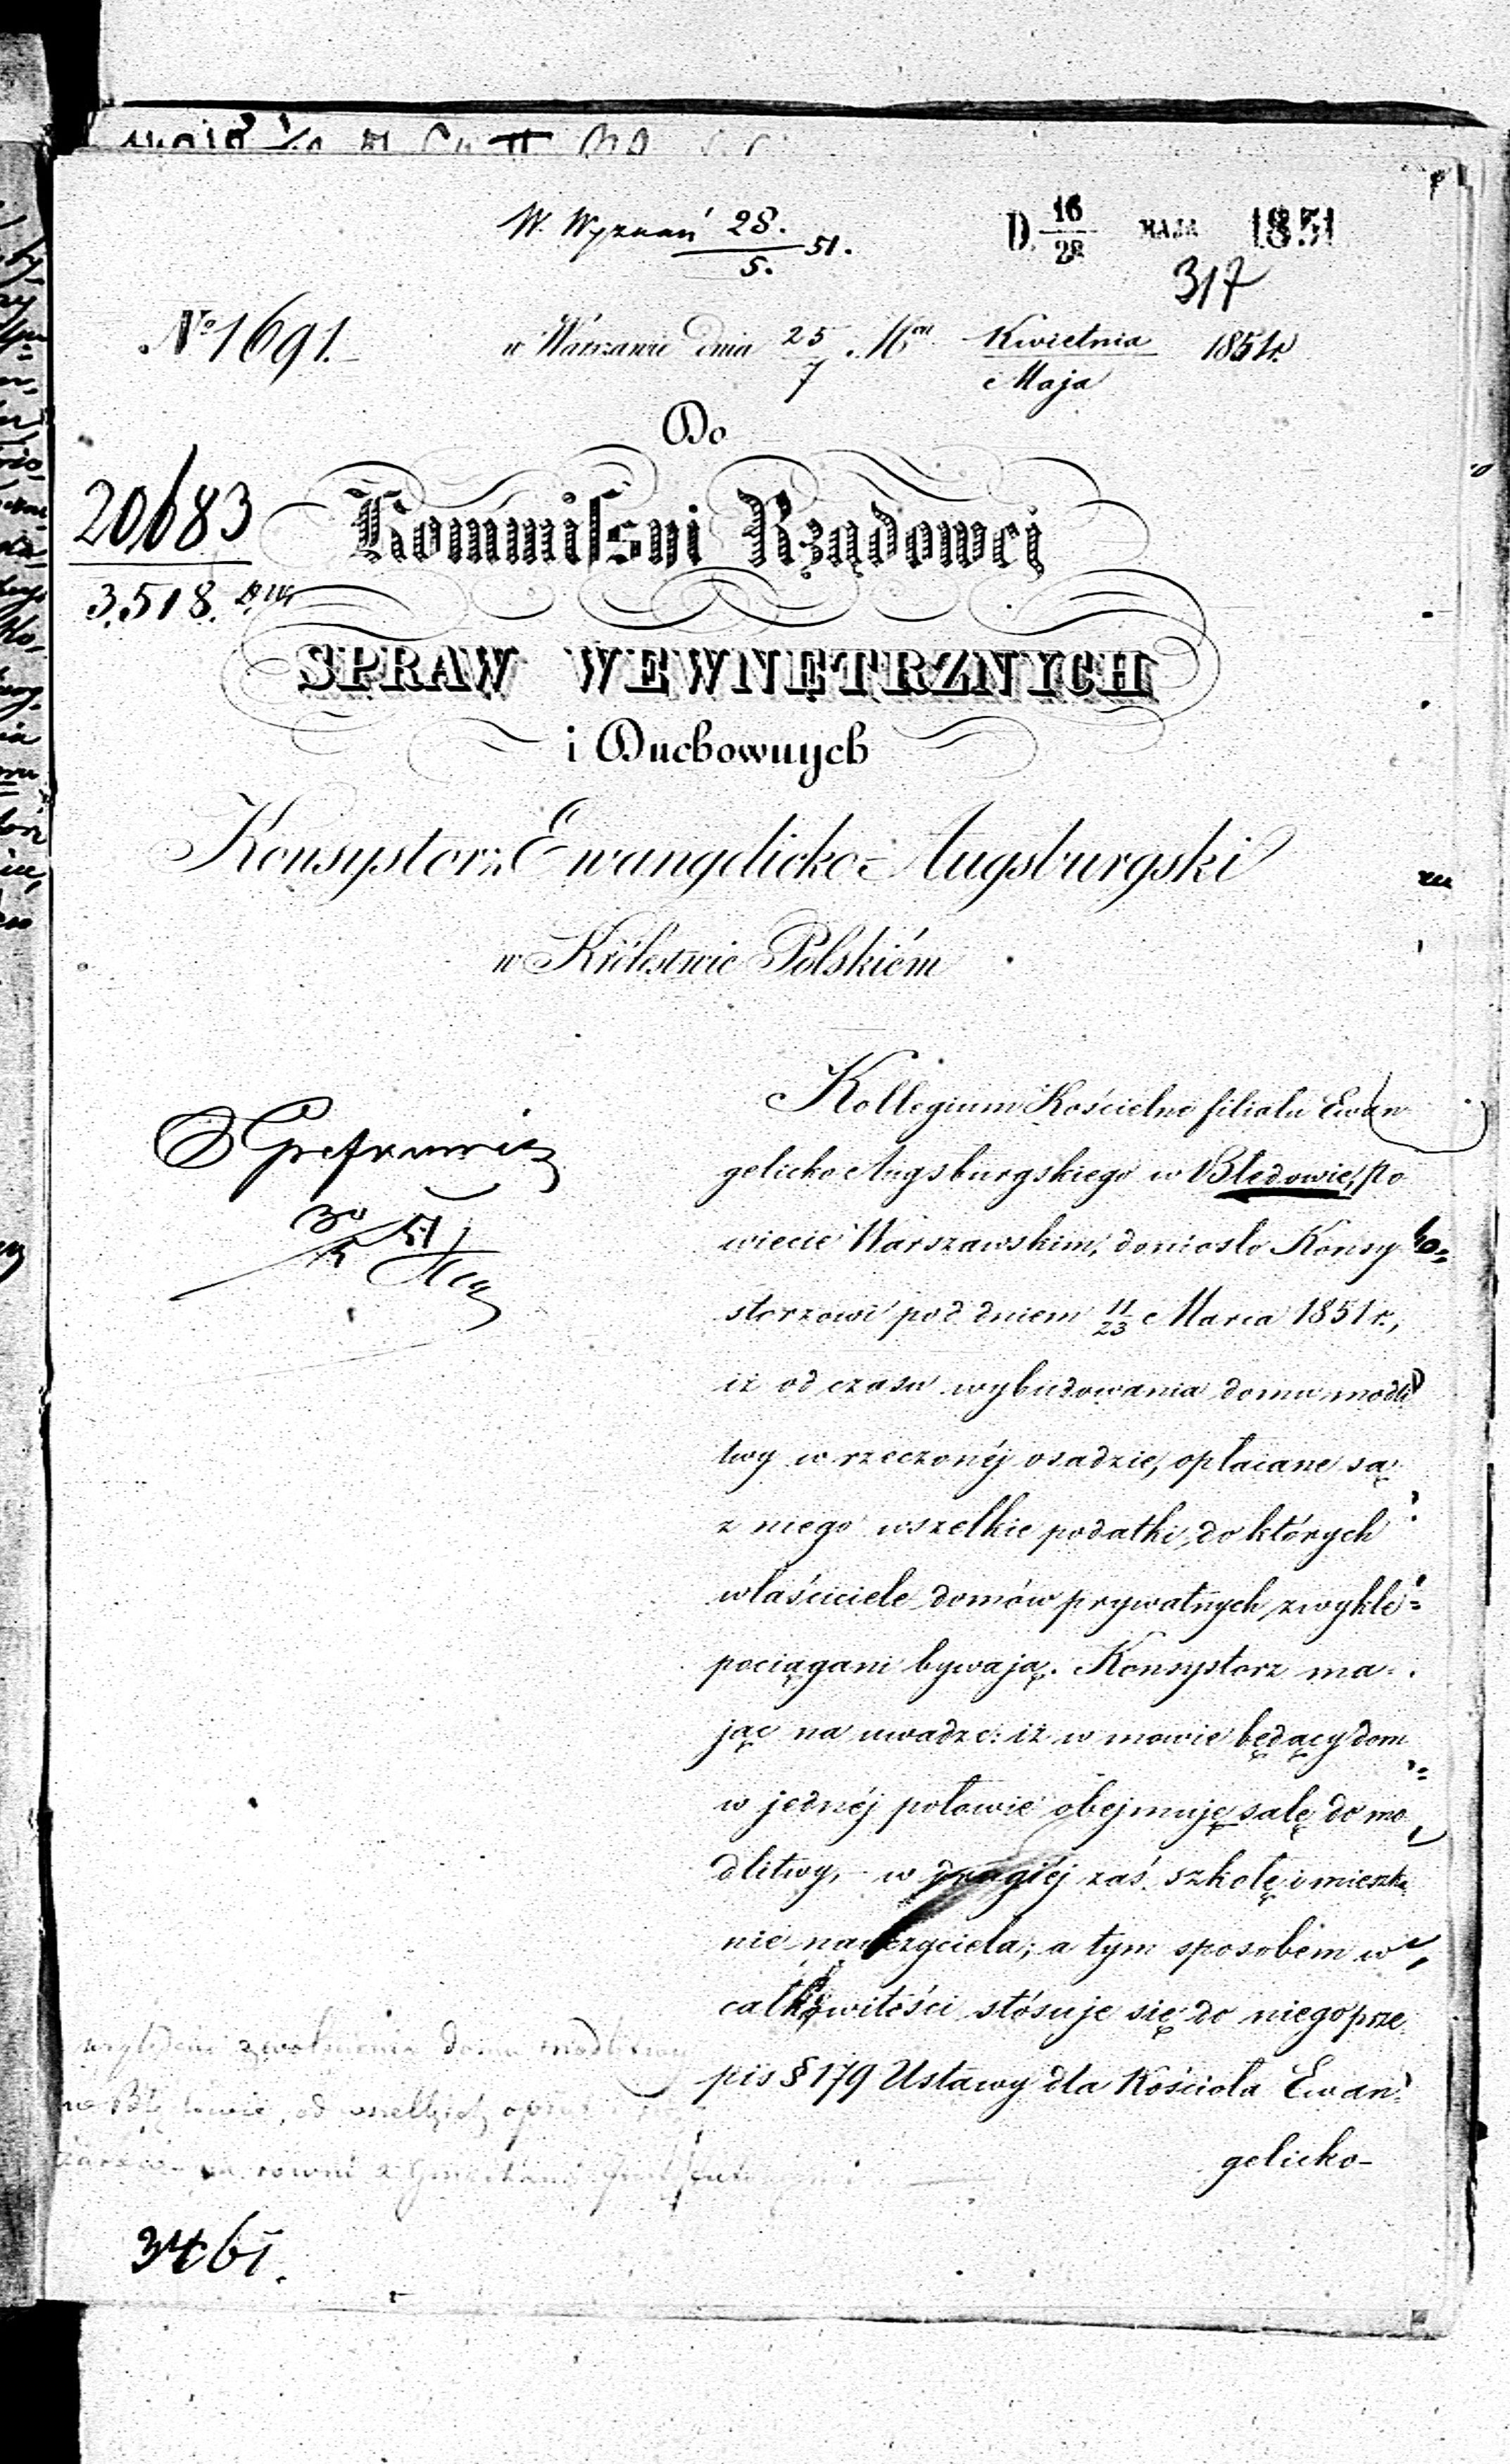 W. Wyznań 28.
5. 51.
D. 16/28 MAJA 1851
317
№ 1691.
w Warszawie dnia 25/7 Kwietnia/Maja 1851 r.
Do
20683
3,518.
Kommissyi Rządowej
SPRAW WEWNĘTRZNYCH
i Duchownych
Konsystorz Ewangelicko-Augsburgski
w Królestwie Polskiém
Kollegium Kościelne filiału Ewan
gelicko Augsburgskiego w Błędowie, po
wiecie Warszawskim, doniosło Konsy
storzowi pod dniem 11/23 Marca 1851 r.,
iż od czasu wybudowania domu modli
twy w rzeczonéj osadzie, opłacane są
z niego wszelkie podatki, do których
właściciele domów prywatnych zwykle
pociągani bywają. Konsystorz ma=
jąc na uwadze: iż w mowie będący dom
w jednéj połowie obejmuje salę do mo
dlitwy, w drugiéj zaś szkołę i mieszka
nie nauczyciela; a tym sposobem w
całkowitości stósuje się do niego prze
pis § 179 Ustawy dla Kościoła Ewan=
gelicko-
zwolnienia domu modlitwy
od wszelkich
na równi z
3461.